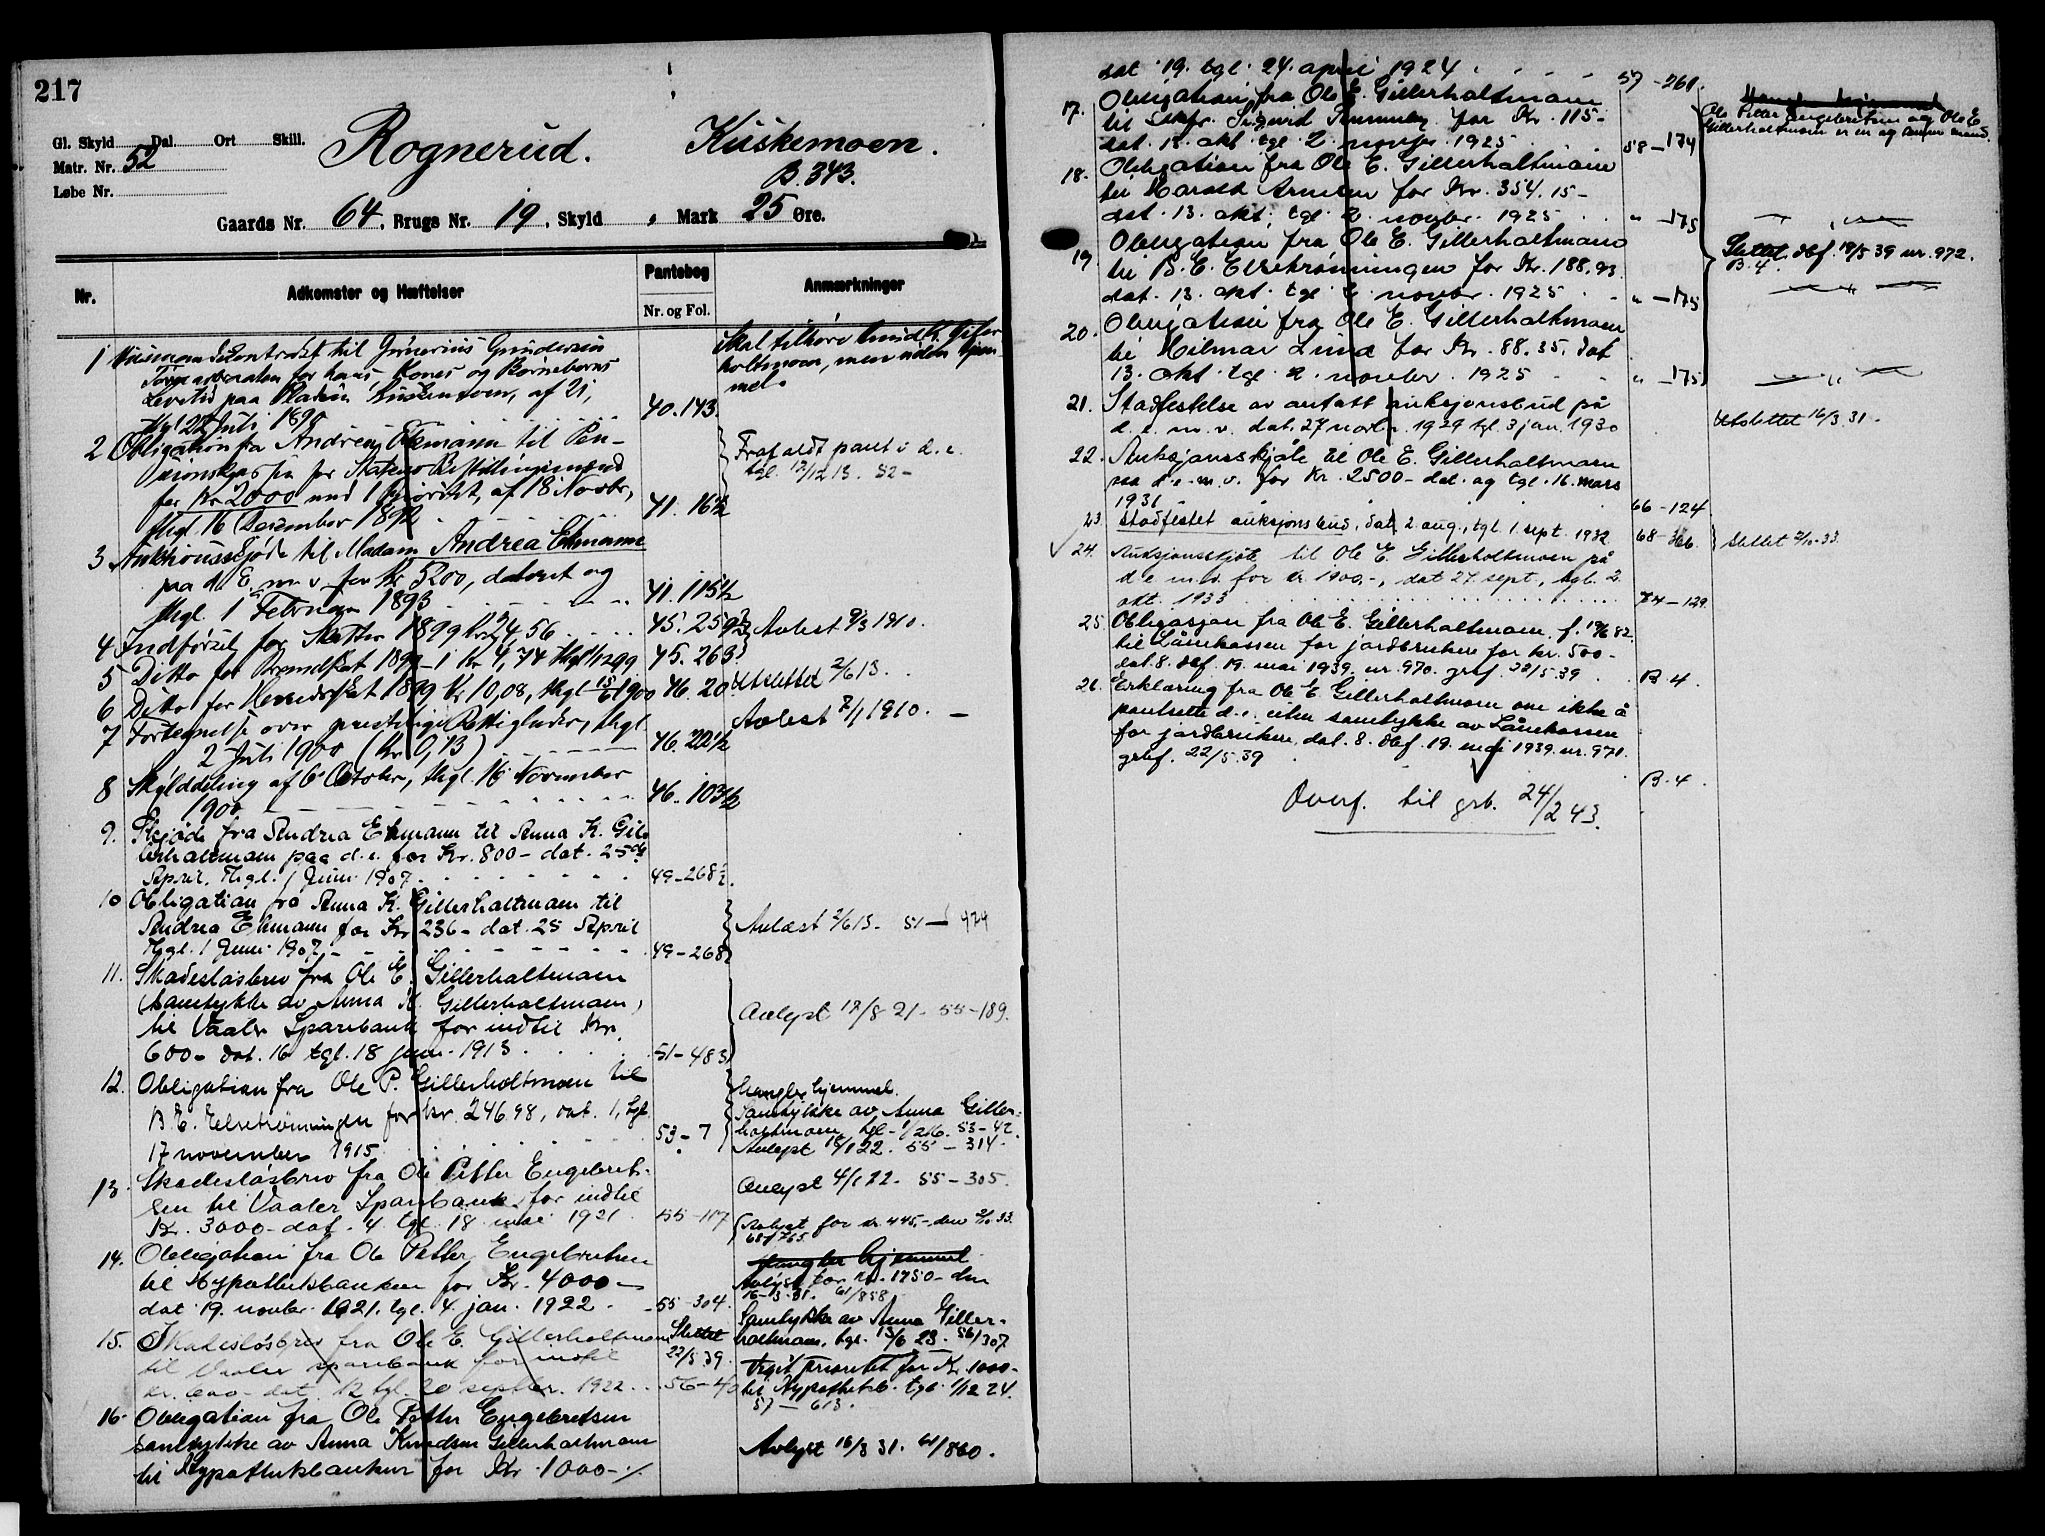 217
Gl. Skyld Dal. Ort Skill.
Matr. Nr. 52
Løbe Nr.
Rognerud. Kuskemoen.
B. 343.
Gaards Nr. 64, Brugs Nr. 19, Skyld , Mark 25 Øre.
Nr. Adkomster og Hæftelser Pantebog Anmærkninger
Nr. og Fol.
1 Husmandskontrakt til Gunerius Gundersen
for hans, Kones og Børneborns
Levetid paa Pladsen Kuskemoen, af 21,
thgl 22 Juli 1890 40. 143.
Skal tilhøre Amud K. Giler
holtmoen, men uden hjem
mel.
2 Obligation fra Andrea Ekmann til Pen-
sionskassen for Statens Bestillingsmænd
for Kr 2000 med 1 prioritet, af 18 Novbr,
thgl 16 December 1892 41. 16½
Frafaldt pant i d. e.
tgl. 12/12 13. 52-
3 Auktionsskjøde til Madam Andrea Ekmann
paa d. E. m v for Kr 5200, dateret og
thgl. 1 Februar 1893 41. 115½
4 Indførsel for Skatter 1899 Kr 24,56 45. 259
5 Ditto for Brandskat 1899 - 1 Kr 4,74 thgl 45. 263
Avlest 9/3 1910.
6 Ditto for Herredsskat 1899 Kr 10,08, thgl 15/6 1900 46. 20
Utslettet 2/6 13.
7 Fortegnelse over præstelige Rettigheder, thgl
2 Juli 1900 (Kr 0,13) 46. 22½
Avlest 7/1 1910. -
8 Skylddeling af 6 October, thgl 16 November
1900 46. 103½
9. Skjøde fra Andrea Ekmann til Anna K. Gil-
lerholtmoen paa d. e. for Kr. 800 - dat. 25de
April. Thgl. 1 Juni 1907. 49-268½.
10 Obligation fra Anna K. Gillerholtmoen til
Andrea Ekmann for Kr 236 - dat. 25 April
Thgl. 1 Juni 1907 - 49-268
Avlæst 2/6 13. 51- 474
11. Skadesløsbrev fra Ole E. Gillerholtmoen
(samtykke av Anna K. Gillerholtmoen)
til Vaaler Sparebank for indtil Kr.
600 - dat. 16 tgl. 18 juni 1913. 51-483
Avlyst 12/8 21. 55-189.
12. Obligation fra Ole P. Gillerholtmoen til
B. E. Elsetrønningen for kr. 246.98, dat. 1, tgl
17 november 1915 53-7
Mangler hjemmel.
Samtykke av Anna Giller-
holtmoen tgl - 1/2 16. 53-42.
Avlyst 18/1 22. 55-314.
13. Skadesløsbrev fra Ole Petter Engebret-
sen til Vaaler Sparebank for indtil
Kr. 3000 - dat. 4. tgl. 18. mai 1921. 55-117
Avlyst 4/1 22. 55-305.
14. Obligation fra Ole Petter Engebretsen
til Hypothekbanken for Kr. 4000 -
dat 19. novbr. 1921. tgl. 4 jan. 1922. - 55-304.
Avlyst for kr. 445,- den 2/10 33.
68/765.
Mangler hjemmel
Avlyst for kr. 1750 - den
16-3-31. 61/858
Samtykke av Anna Giller-
holtmoen, tgl. 15/6 23. 56/307
15. Skadesløsbrev fra Ole E. Gillerholtmoen Slettet
til Vaaler sparebank for indtil 22/5 39.
kr. 600 - dat. 12 tgl. 20 septbr. 1922. 56-40
Veget prioritet for Kr. 1000 -
til Hypothekb. tgl. 1/12 24.
57-613.
16. Obligation fra Ole Petter Engebretsen
samtykke av Anna Knudsen Gillerholtmoen
til Hypothekbanken for Kr. 1000 -
Avlyst 16/3 31. 61/860.
dat. 19. tgl. 24. april 1924. 57-261.
17. Obligation fra Ole E. Gillerholtmoen
til for Kr. 115 -
dat. 13. okt. tgl. 2. novbr. 1925 58-174
Mangler hjemmel
Ole Petter Engebretsen og Ole E.
Gillerholtmoen er en og samme mand.
18. Obligation fra Ole E. Gillerholtmoen
til Harald Arnesen for Kr. 354.15 -
dat. 13. okt. tgl. 2. novbr. 1925 " -175
19. Obligation fra Ole E. Gillerholtmoen
til B. E. Elsetrønningen for Kr. 188.93.
dat. 13. okt. tgl. 2 novbr. 1925 " -175
Slettet dbf. 19/5 39 nr. 972.
B. 4.
20. Obligation fra Ole E. Gillerholtmoen
til Hilmar Lund for Kr. 88.35. dat
13. okt. tgl. 2. novbr. 1925 " -175
21. Stadfestelse av antatt auksjonsbud på
d. e. m. v. dat. 27 novbr. 1929 tgl. 3 jan. 1930
Utslettet 16/3 31.
22. Auksjonsskjøte til Ole E. Gillerholtmoen
paa d. e. m. v. for Kr. 2500 - dat. og tgl. 16. mars
1931 66-124
23. Stadfestet auksjonsbud, dat. 2. aug., tgl. 1. sept. 1932 68-366. Slettet 2/10-33.
24. Auksjonsskjøte til Ole E. Gillerholtmoen på
d. e. m. v. for kr. 1900,-, dat 27. sept., tgl. 2.
okt. 1933 74-129.
25. Obligasjon fra Ole E. Gillerholtmoen, f. 82
til Lånekassen for jordbrukere for kr. 500 -
dat. 8. dbf. 19. mai 1939. nr. 970. grbf. 22/5. 39 B. 4.
26. Erklæring fra Ole E. Gillerholtmoen om ikke å
pantsette d. e. uten samtykke av Lånekassen
for jordbrukere, dat. 8. dbf. 19. mai 1939. nr. 971.
grbf. 22/5. 39
B. 4.
Overf. til grb. 24/2 43.